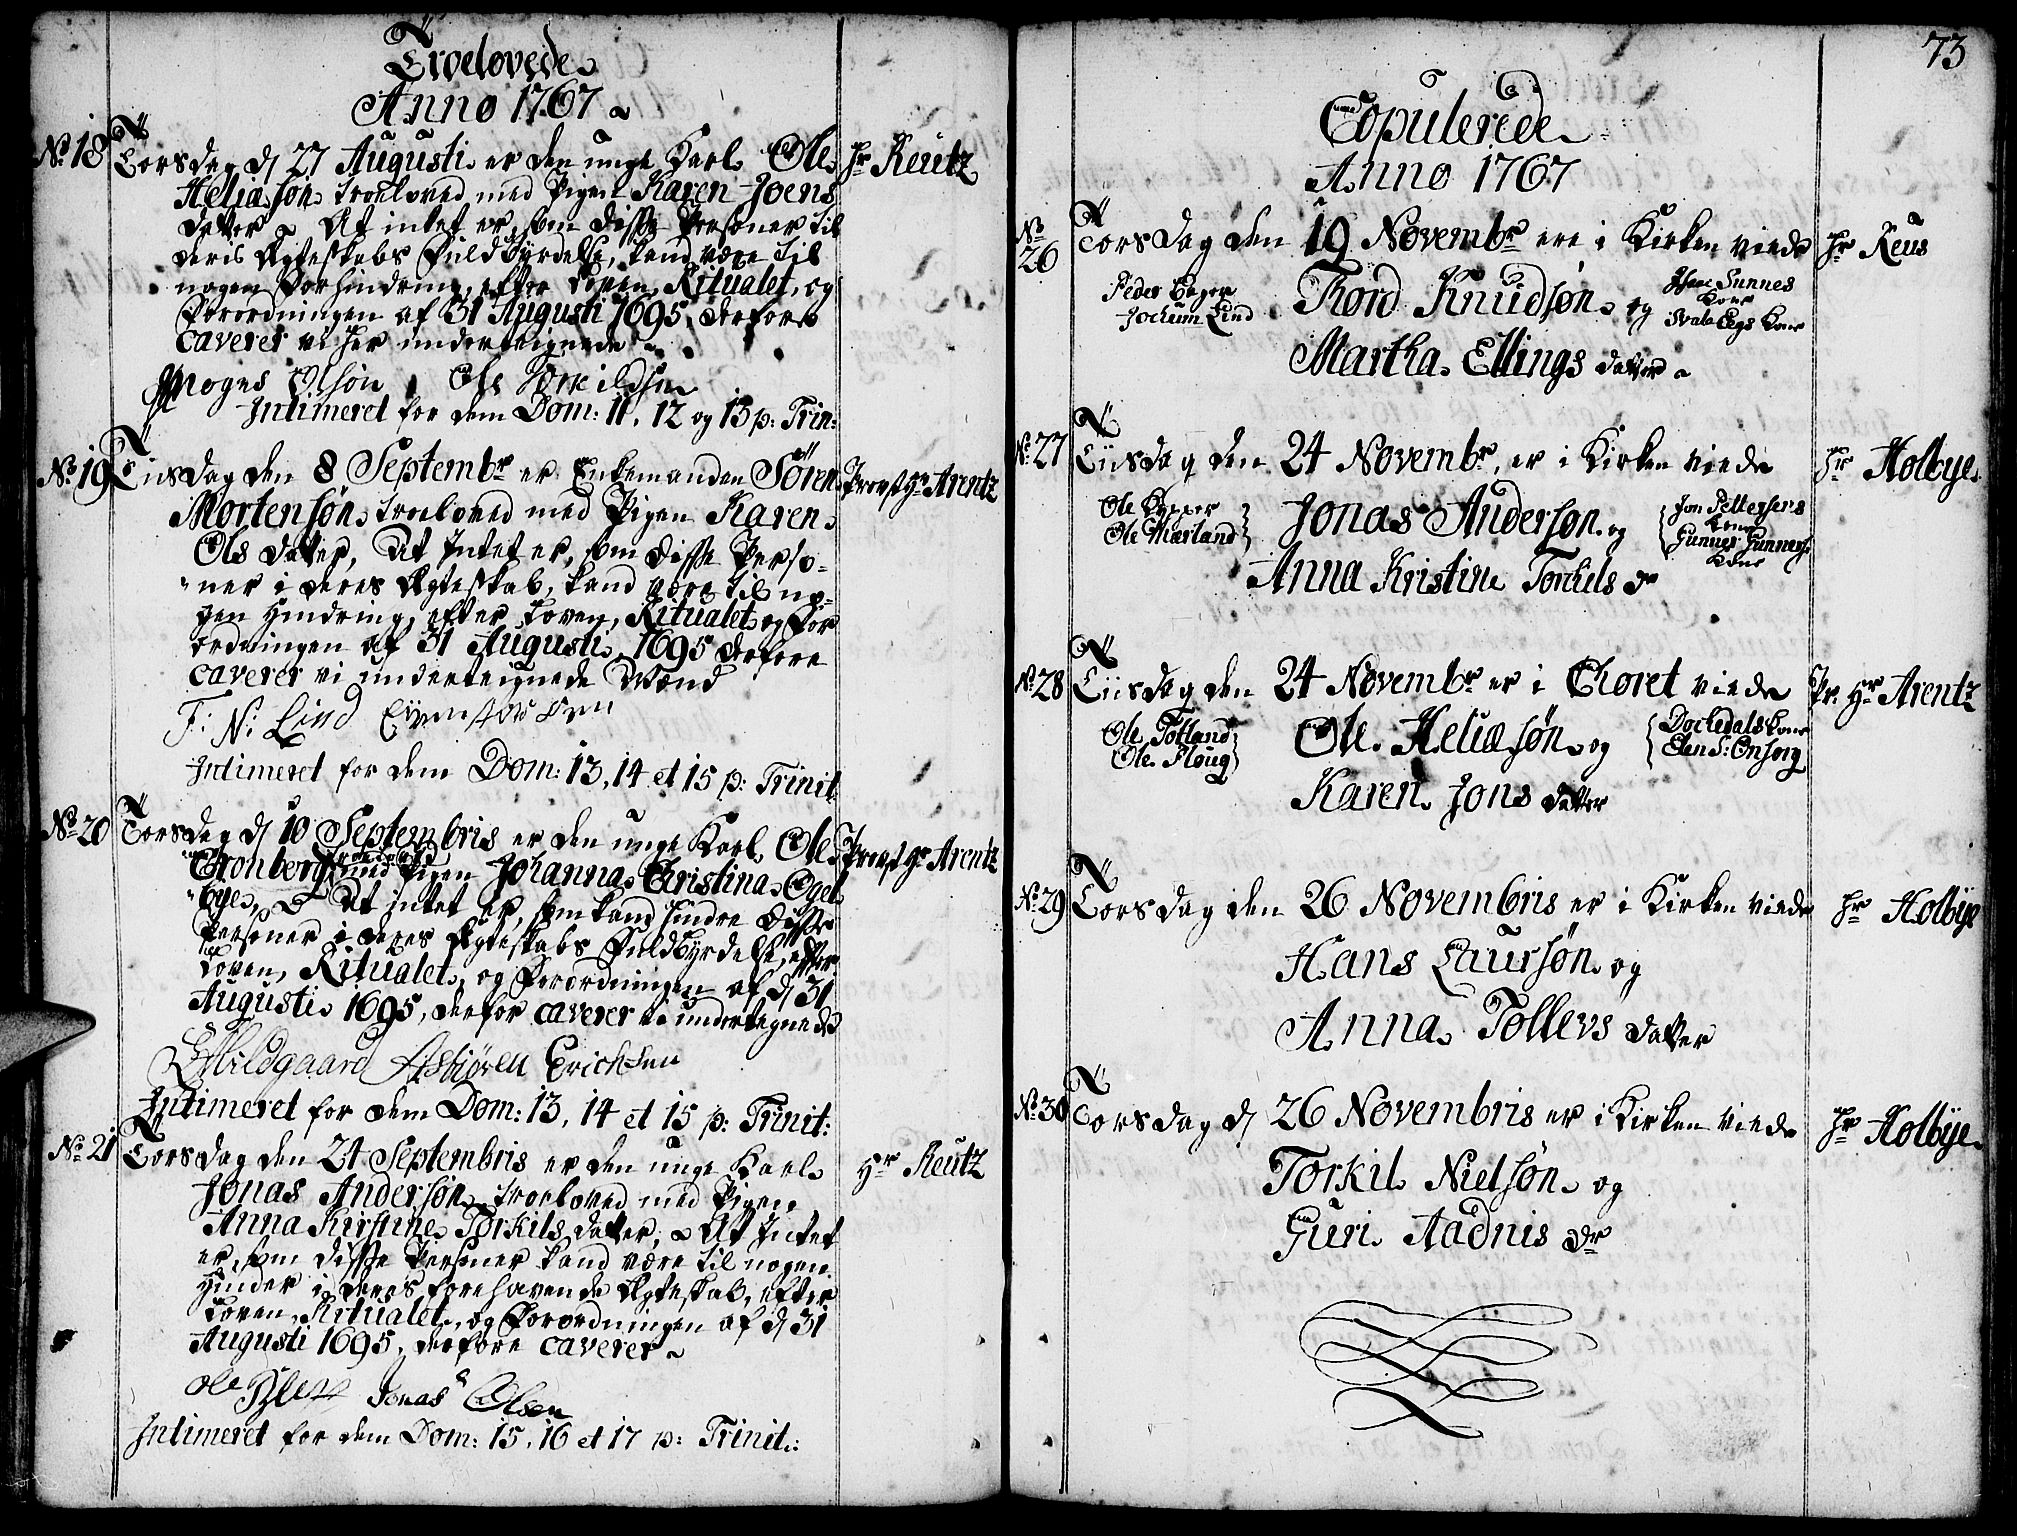 Troelovede
Anno 1767
No. 18 Torsdag d 27 Augusti er den unge Karl Ole Hr Reutz
Heliæsøn troeloved med Pigen Karen Joens
datter At intet er, som disse Personer til
deris Ægteskabs Fuldbyrdelse, kand være til
nogen Forhindring, efter Loven, Ritualet, og
Forordningen af 31 Augusti 1695, derfore
caverer vi her underteignede
Mogns Olsøn Ole Torkildsen
Intimeret for dem Dom: 11, 12 og 13 p: Trin:
No. 19 Tiisdag den 8 Septembr er Enkemanden Søren Provst Hr Arentz
Mortensøn troeloved med Pigen Karen
Ols datter, At Intet er, som disse Perso-
ner i deres Ægteskab, kand være til no-
gen Hindring, efter Loven, Ritualet og For
ordningen af 31 Augusti 1695 derfore
caverer vi underteignede
F: N: Lind
Intimeret for dem Dom: 13, 14 et 15 p: Trinit
No. 20 Torsdag d 10 Septembris er den unge Karl Ole Provst Hr Arentz
Cronberg troeloved med Pigen Johanna Christina Ogel
bye, At Intet er, som kand hindre disse
Personer i deres Ægteskabs Fuldbyrdelse, efter
Loven, Ritualet, og Forordningen af d 31
Augusti 1695, derfor caverer vi undertegnede
Hildgaard Asbiøren Erichsen
Intimeret for dem Dom: 13, 14 et 15 p: Trinit:
No. 21 Torsdag den 24 Septembris er den unge Karl Hr Reutz
Jonas Andersøn troeloved med Pigen
Anna Kirstine Torkils datter, At Intet
er, som disse Personer kand være til nogen
Hinder i deres forehavende Ægteskab, efter
Loven, Ritualet, og Forordningen af d 31
Augusti 1695, derfore caverer
Ole Jonas Olsen
Intimeret for dem Dom: 15, 16 et 17 p: Trinit:
73
Copulerede
Anno 1767
No. 26 Torsdag den 19 Novembr ere i Kirken viede Hr Reus
Peder
Jochum Lind
Thord Knudsøn og
Sunnes
Kone
Kone
Martha Ellings datter
No. 27 Tiisdag den 24 Novembr, er i Kirken viede Hr Holbye
Ole
Ole Marland
Jonas Andersøn og
Jon Pettersens
Kone
Gunner Gunners
Kone
Anna Kristine Torchils dr
No. 28 Tiisdag den 24 Novembr er i Choret viede Pr. Hr Arentz
Ole Totland
Ole Ploug
Ole Heliæsøn og
Dochedals kone
Elen S: Onsorg
Karen Jons datter
No. 29 Torsdag den 26 Novembris er i Kirken viede Hr Holbye
Hans Laursøn og
Anna Tollevs datter
No. 30 Torsdag d 26 Novembris er i Kirken viede Hr Holbye
Torkil Nielsøn og
Guri Aadnis dr